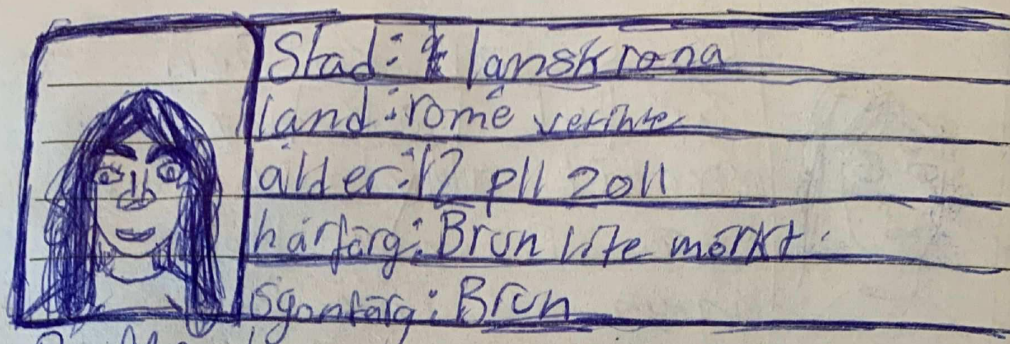 Stad: lanskrona
land: rome
ålder: 12 pll 2011
hårfärg: Brun lite mörkt
ögonfärg: Brun